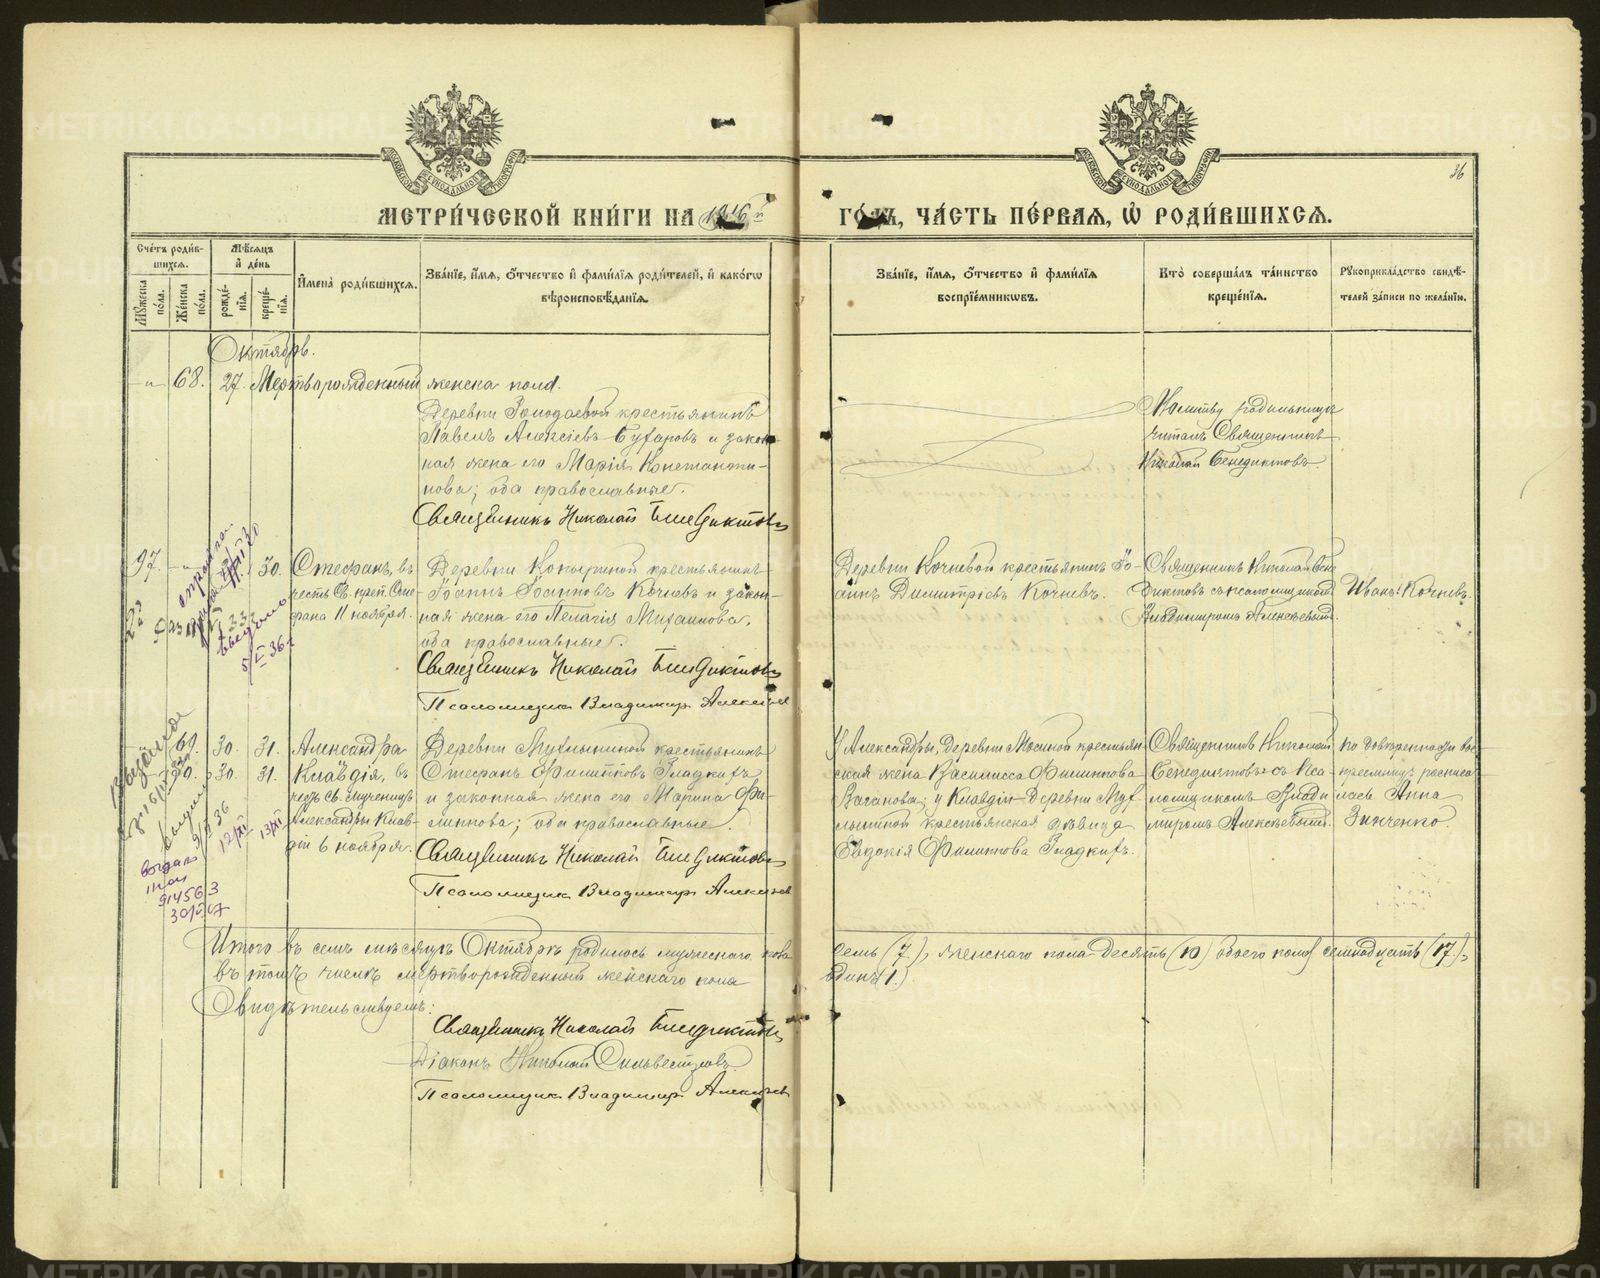 МОСКОВСКОЙ СѴНОДАЛЬНОЙ ТИПОГРАФІИ
МОСКОВСКОЙ СѴНОДАЛЬНОЙ ТИПОГРАФІИ
36
МЕТРИ́ЧЕСКОЙ КНИ́ГИ НА 1916 й
ГО́ДЪ, ЧА́СТЬ ПЕ́РВАЯ, Ѡ РОДИ́ВШИХСЯ.
Сче́тъ роди́в-
шихся.
Мꙋ́жеска по́ла.
Же́нска по́ла.
Мѣ́сяцъ и҆ де́нь
рожде́-
нїя.
креще́-
нїя.
И҆мена̀ роди́вшихся.
Зва́нїе, и҆́мя, ѻ҆́тчество и҆ фами́лїя роди́телей, и҆ како́гѡ
вѣроисповѣ́данїя.
Зва́нїе, и҆́мя, ѻ҆́тчество и҆ фами́лїя
воспрїе́мникѡвъ.
Кто̀ соверша́лъ та́инство
креще́нїя.
Рꙋкоприкла́дство свидѣ́-
телей за́писи по жела́нїю.
Октябрь.
-"- 68. 27. Мертворожденный женска пола.
Деревни крестьянинъ
Павелъ Алексіевъ и закон-
ная жена его Марія Константи-
нова; оба православные.
Священникъ Николай Бенедиктовъ
Молитву родильницѣ
читалъ Священникъ
Николай Бенедиктовъ.
97. -"- 30. Стефанъ, въ
честь Св. преп. Сте-
фана 11 ноября.
Деревни крестьянинъ
Іоаннъ Іоанновъ Кочневъ и закон-
ная жена его Пелагія Михаилова,
оба православные.
Священникъ Николай Бенедиктовъ
Псаломщикъ Владимиръ Алексѣевъ
Деревни Кочневой крестьянинъ Іо-
аннъ Димитріевъ Кочневъ.
Священникъ Николай Бене-
диктовъ съ псаломщикомъ
Владимиромъ Алексѣевымъ.
Иванъ Кочневъ.
5/I 36 г
69. 30. 31. Александра
70. 30. 31. Клавдія, въ
честь Св. мученицъ
Александры и Клав-
діи 6 ноября.
Деревни крестьянинъ
Стефанъ Филипповъ Гладкихъ
и законная жена его Марина Фи-
липпова; оба православные.
Священникъ Николай Бенедиктовъ
Псаломщикъ Владимиръ Алексѣевъ
У Александры, Деревни крестьян-
ская жена Василисса Филиппова
у Клавдіи Деревни
крестьянская дѣвица
Евдокія Филиппова Гладкихъ.
Священникъ Николай
Бенедиктовъ съ Пса-
ломщикомъ Влади-
миромъ Алексѣевымъ.
По довѣренности вос-
преемницъ расписа-
лась Анна
Зинченко.
12/XII 13/XII
914563
Итого въ семъ мѣсяцѣ Октябрѣ родилось мужескаго пола
семь (7), женскаго пола десять (10) обоего пола семнадцать (17),
въ томъ числѣ мертворожденный женскаго пола
одинъ (1.)
Свидѣтельствуемъ:
Священникъ Николай Бенедиктовъ
Діаконъ Николай Сильвестровъ
Псаломщикъ Владимиръ Алексѣевъ
METRIKI.GASO-URAL.RU